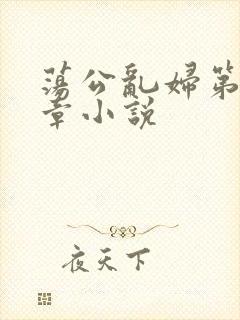 蕩公亂婦第
章小說
夜天下